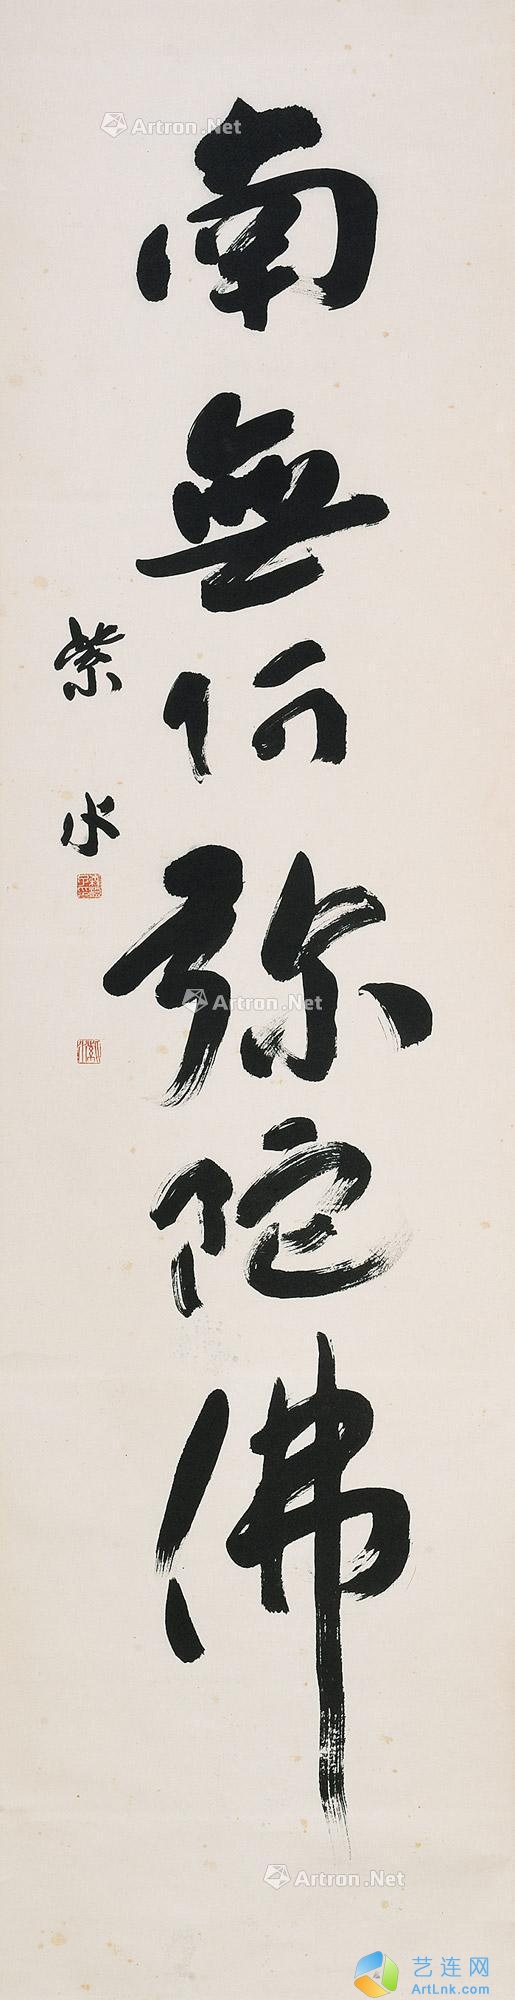 南無阿弥陀佛
紫水
Artron.Net
Artron.Net
Artron.Net
艺连网
ArtLnk.com